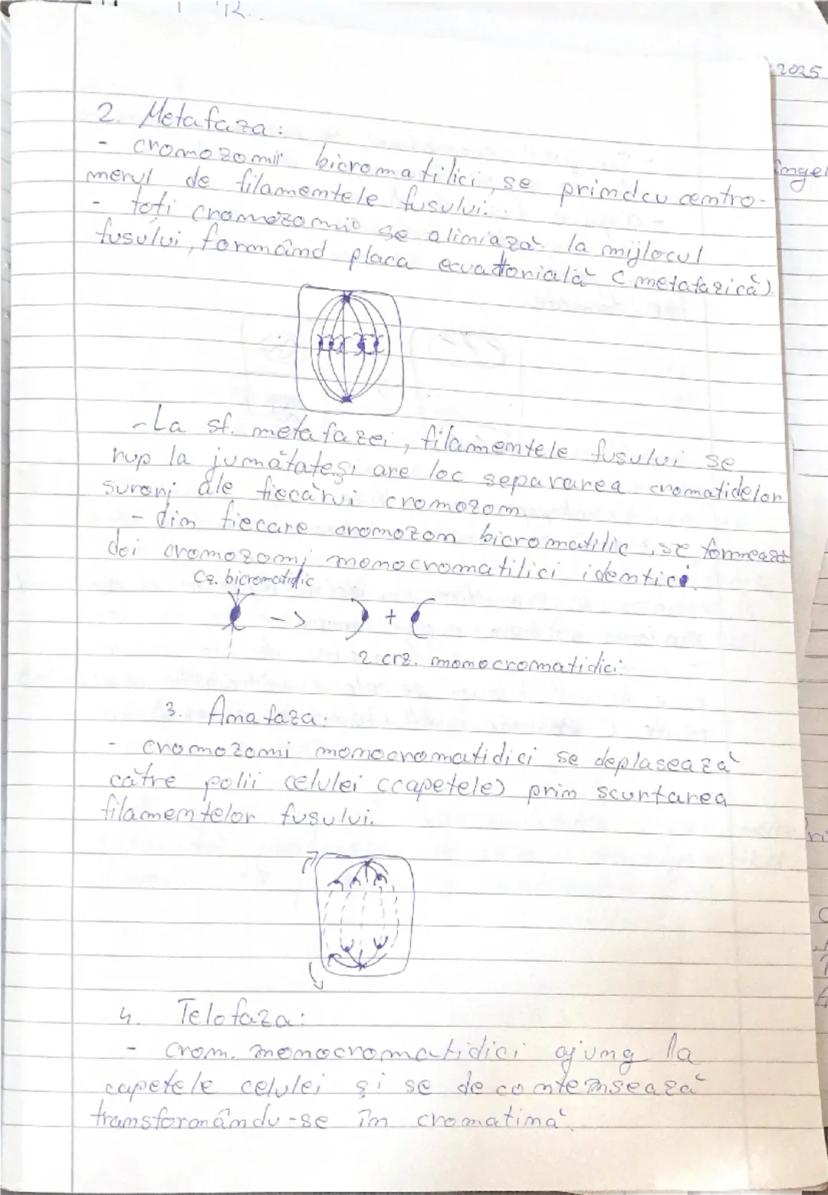 2025
2. Metafaza:
- cromozomii bicromatilici, se prind cu centro-
merul de filamentele fusului.
- toti cromozomii se aliniază la mijlocul
fusului, formând placa ecuatorială (metafazică)
- La sf. metafazei, filamentele fusului se
rup la jumătate și are loc separarea cromatidelor
surori ale fiecărui cromozom
- din fiecare cromozon bicromatilic, se formează
doi cromozomi monocromatilici identici.
Cz. bicromatidic
-> +
2 crz. monocromatidici
3. Anafaza:
- cromozomi monocromatidici se deplasează
către polii celulei (capetele) prin scurtarea
filamentelor fusului.
4. Telofaza:
- crom. monocromatidici ajung la
capetele celulei și se decontensează
transformându-se în cromatină.